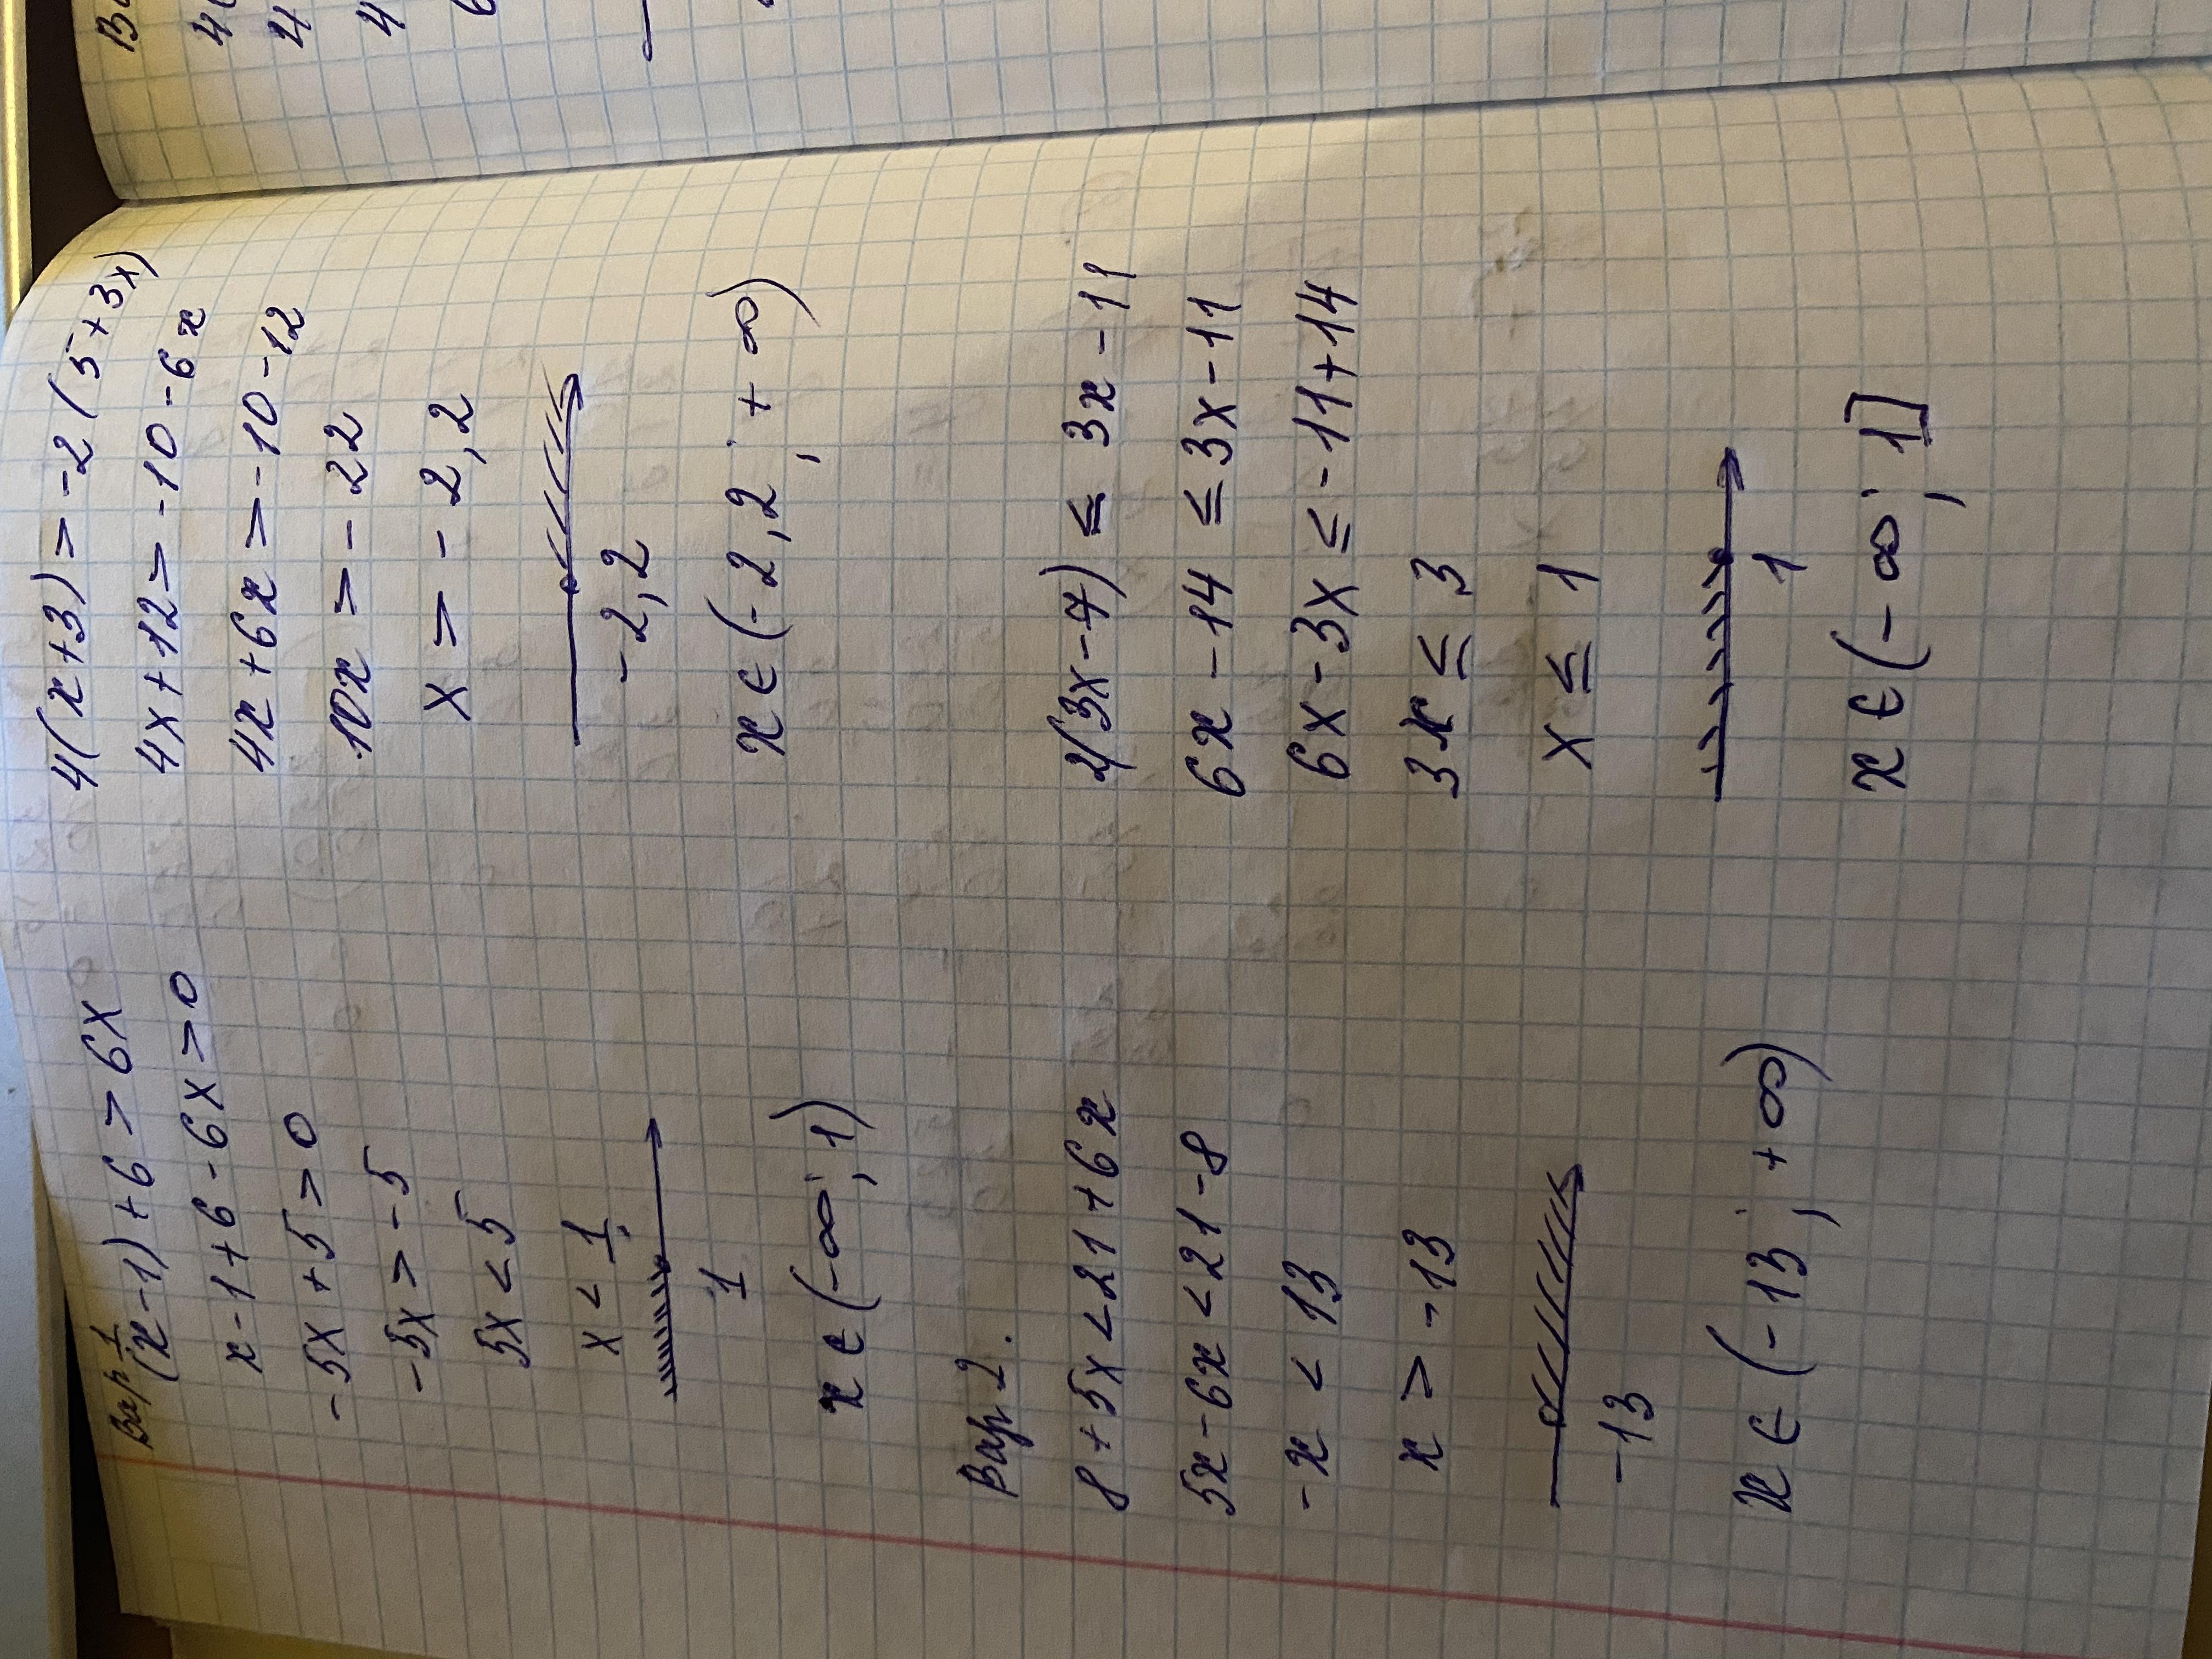 Вар 1
(x-1)+6 > 6x
x-1+6-6x>0
-5x+5>0
-5x>-5
5x<5
x<1
1
x ∈ (-∞; 1)
4(x+3)>-2(5+3x)
4x+12>-10-6x
4x+6x>-10-12
10x>-22
x>-2,2
-2,2
x ∈ (-2,2; +∞)
Вар 2.
8+5x<21+6x
5x-6x<21-8
-x<13
x>-13
-13
x ∈ (-13; +∞)
2(3x-7) ≤ 3x-11
6x-14 ≤ 3x-11
6x-3x ≤ -11+14
3x ≤ 3
x ≤ 1
1
x ∈ (-∞; 1]